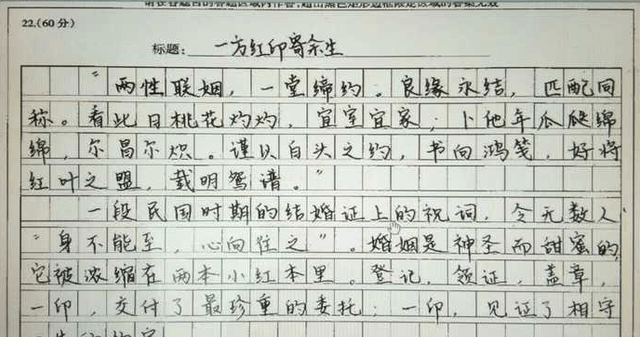 请在各题目的答题区域内作答，超出黑色矩形边框限定区域的答案无效
22.(60分)
标题：一方红印寄余生
“两性联姻，一堂缔约。良缘永结，匹配同
称。看此日桃花灼灼，宜室宜家；卜他年瓜瓞绵
绵，尔昌尔炽。谨以白头之约，书向鸿笺，好将
红叶之盟，载明鸳谱。”
一段民国时期的结婚证上的祝词，令无数人
“身不能至，心向往之”。婚姻是神圣而甜蜜的，
它被浓缩在两本小红本里。登记，领证，盖章，
一印，交付了最珍重的委托；一印，见证了相守